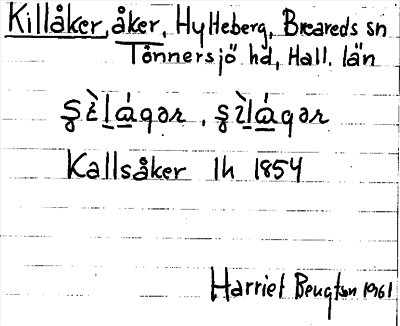 Killåker, åker, Hylteberg, Breareds sn
Tönnersjö hd, Hall. län
ʂὲlágər, ʂìlágər
Kallsåker lh 1854
Harriet Bengtson 1961